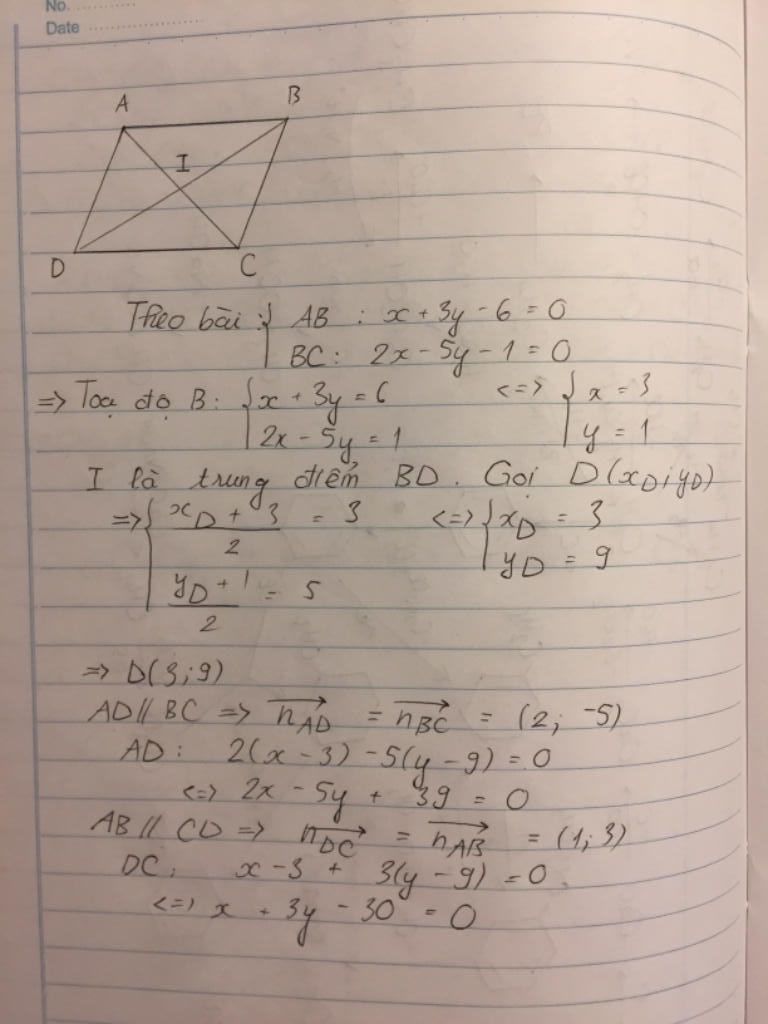 No. ..............
Date ........................
A
B
I
D
C
Theo bài : { AB : x + 3y - 6 = 0
BC : 2x - 5y - 1 = 0
=> Toạ độ B : { x + 3y = 6 <=> { x = 3
2x - 5y = 1 y = 1
I là trung điểm BD . Gọi D(x_D ; y_D)
=> { (x_D + 3)/2 = 3 <=> { x_D = 3
(y_D + 1)/2 = 5 y_D = 9
=> D(3 ; 9)
AD // BC => \overrightarrow{n_{AD}} = \overrightarrow{n_{BC}} = (2 ; -5)
AD : 2(x - 3) - 5(y - 9) = 0
<=> 2x - 5y + 39 = 0
AB // CD => \overrightarrow{n_{DC}} = \overrightarrow{n_{AB}} = (1 ; 3)
DC : x - 3 + 3(y - 9) = 0
<=> x + 3y - 30 = 0